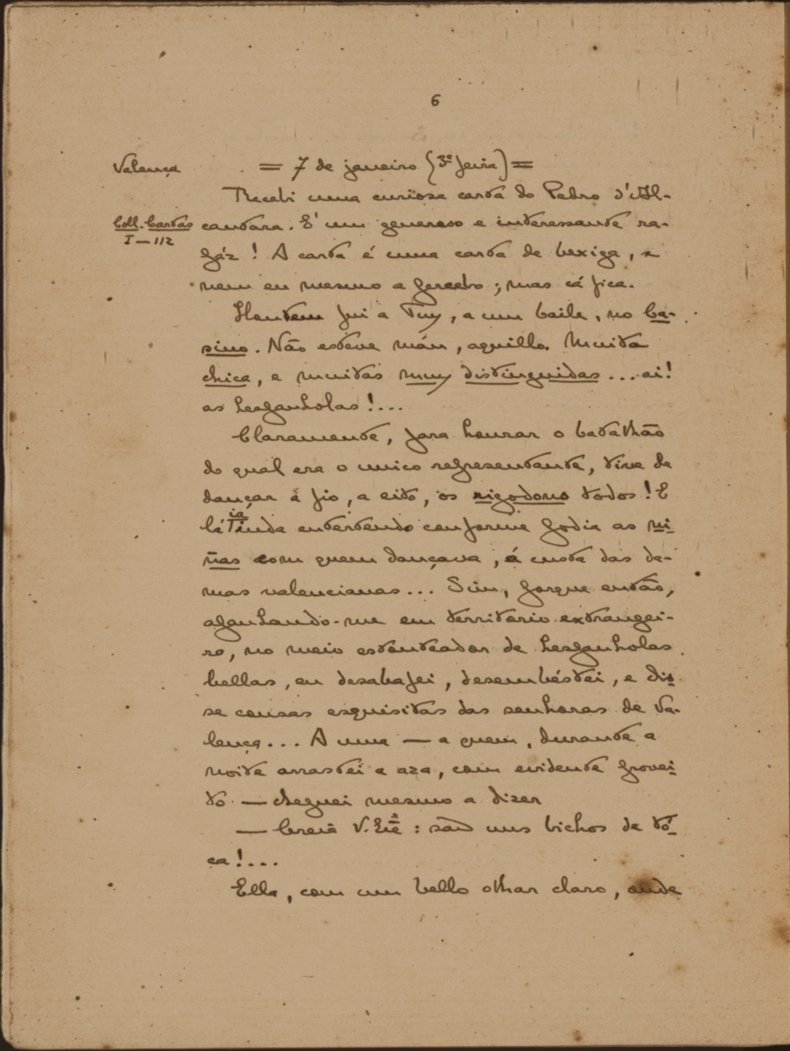 6
Valença
= 7 de janeiro (3ª feira) =
Recebi uma curiosa carta do Pedro d'Al-
Coll. Cartas
I — 112
cantara. E' um generoso e interessante ra-
páz! A carta é uma carta de bexiga, e
nem eu mesmo a percebo; mas cá fica.
Hontem fui a Tuy, a um baile, no Ca-
sino. Não esteve máu, aquillo. Muita
chica, e muitas muy distinguidas... ai!
as hespanholas!...
Claramente, para honrar o batalhão
do qual era o unico representante, tive de
dançar a fio, a eito, os rigodons todos! E
lá ia inda entretendo conforme podia as ni-
ñas com quem dançava, á custa das da-
mas valencianas... Sim, porque então,
apanhando-me em territorio extrangei-
ro, no meio estonteador de hespanholas
bellas, eu desabafei, desembéstei, e dis-
se cousas esquisitas das senhoras de Va-
lença... A uma — a quem, durante a
noite arrastei a aza, com evidente provei-
to — cheguei mesmo a dizer
— Creia V. Exª: são uns bichos da tó-
ca!...
Ella, com um bello olhar claro, onde